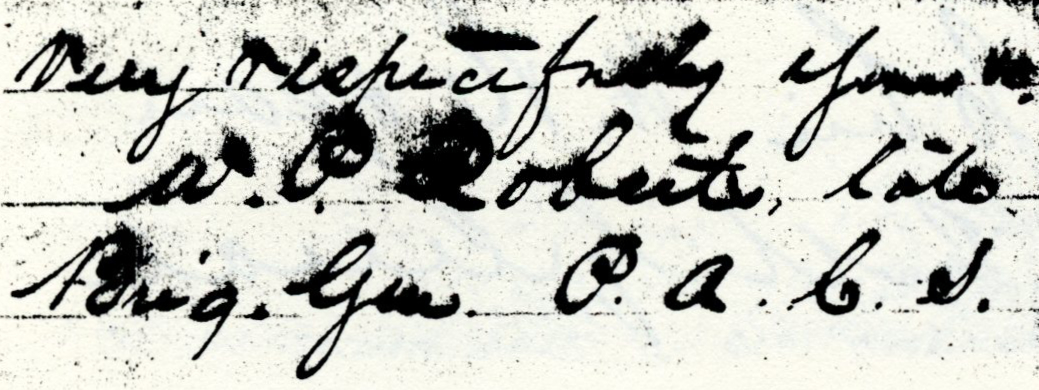 Very respectfully yours
W. P. Roberts, late
Brig. Gen. P. A. C. S.